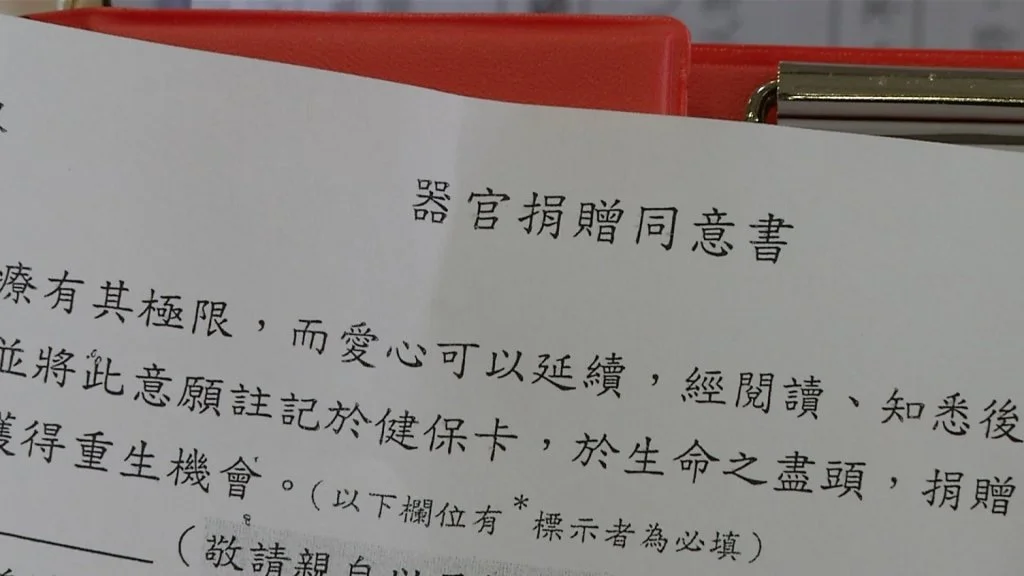 器官捐贈同意書
療有其極限，而愛心可以延續，經閱讀、知悉後
並將此意願註記於健保卡，於生命之盡頭，捐贈
獲得重生機會。（以下欄位有*標示者為必填）
（敬請親自